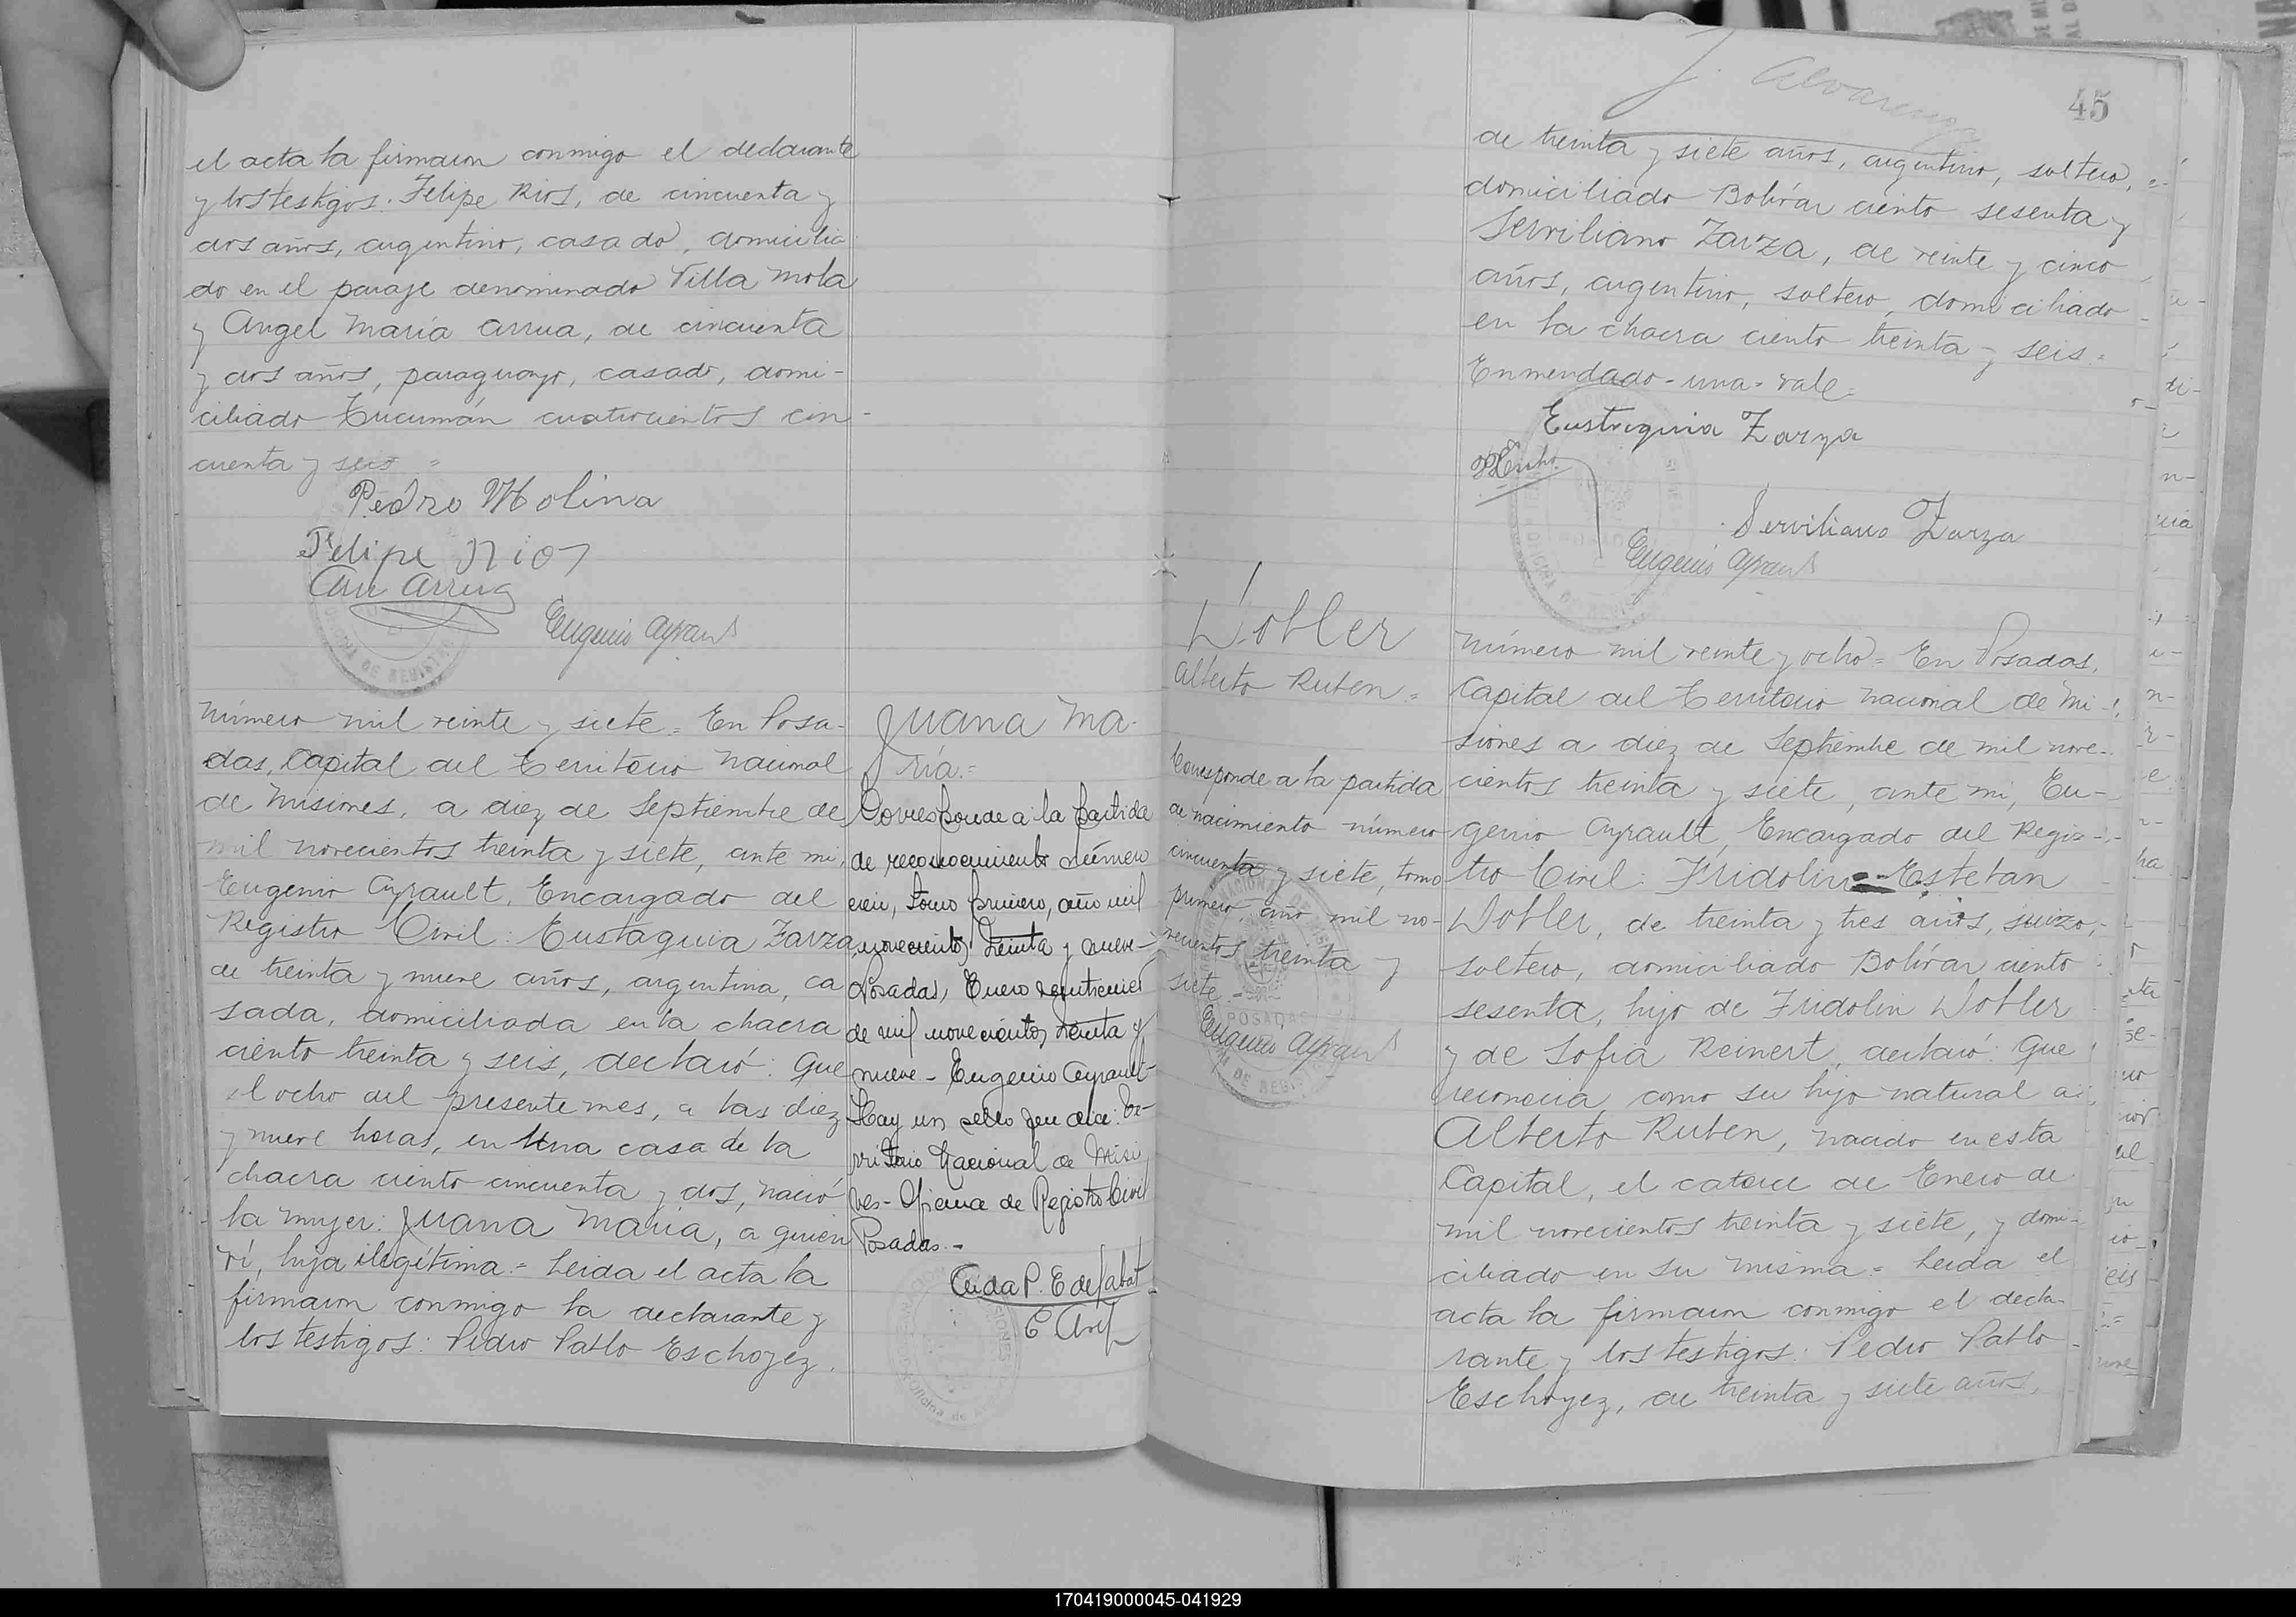 el acta la firmaron conmigo el declarante
y los testigos: Felipe Rios, de cincuenta y
dos años, argentino, casado, domicilia
do en el paraje denominado Villa Mola
y Angel María Arrua, de cincuenta
y dos años, paraguayo, casado, domi-
ciliado Tucumán cuatrocientos cin-
cuenta y seis =
Pedro Molina
Felipe Rios
Arrua
Eugenio Ayrault
Número mil veinte y siete = En Posa-
das, Capital del Territorio Nacional
de Misiones, a diez de Septiembre de
mil novecientos treinta y siete, ante mi,
Eugenio Ayrault, Encargado del
Registro Civil: Eustaquia Zarza,
de treinta y nueve años, argentina, ca
sada, domiciliada en la chacra
ciento treinta y seis, declaró: Que
el ocho del presente mes, a las diez
y nueve horas, en una casa de la
chacra ciento cincuenta y dos, nació
la mujer: Juana María, a quien
ví, hija ilegítima = Leida el acta la
firmaron conmigo la declarante y
los testigos: Pedro Pablo Eschoyez,
Juana Ma-
ría.=
Corresponde a la partida
de reconocimiento número
cien, tomo primero, año mil
novecientos treinta y nueve-
Posadas, Enero
de mil novecientos treinta y
nueve - Eugenio Ayrault-
Hay un sello que dice: Te-
rritorio Nacional de Misio
nes- Oficina de Registro Civil
Posadas.-
J. Alvarenga
45
de treinta y siete años, argentino, soltero,
domiciliado Bolívar ciento sesenta y
Serviliano Zarza, de veinte y cinco
años, argentino, soltero, domiciliado
en la chacra ciento treinta y seis =
Enmendado - una - vale =
Eustaquia Zarza
Serviliano Zarza
Eugenio Ayrault
Dobler
Alberto Ruben =
Corresponde a la partida
de nacimiento número
cincuenta y siete, tomo
primero, año mil no-
vecientos treinta y
siete.-
Eugenio Ayrault
POSADAS
Número mil veinte y ocho = En Posadas,
Capital del Territorio Nacional de Mi-
siones a diez de Septiembre de mil nove-
cientos treinta y siete, ante mi, Eu-
genio Ayrault, Encargado del Regis-
tro Civil: Fridolin Esteban
Dobler, de treinta y tres años, suizo,
soltero, domiciliado Bolívar ciento
sesenta, hijo de Fridolin Dobler
y de Sofia Reinert, declaró: Que
reconocia como su hijo natural a
Alberto Ruben, nacido en esta
Capital, el catorce de Enero de
mil novecientos treinta y siete, y domi-
ciliado en su misma = Leida el
acta la firmaron conmigo el decla-
rante y los testigos: Pedro Pablo
Eschoyez, de treinta y siete años,
170419000045-041929